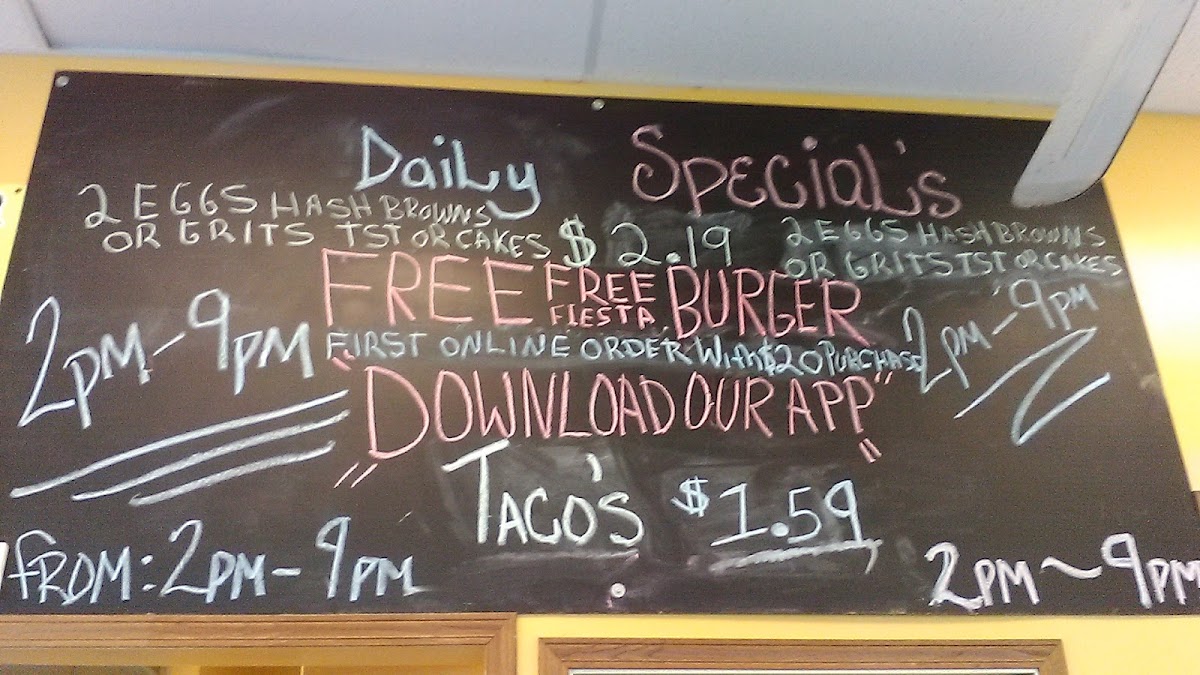 Daily Special's
2 EGGS HASH BROWNS
OR GRITS TST OR CAKES $2.19
2 EGGS HASH BROWNS
OR GRITS TST OR CAKES
FREE FREE FIESTA BURGER
2PM-9PM
FIRST ONLINE ORDER With $20 PURCHASE
2PM-9PM
"DOWNLOAD OUR APP"
TACO'S $1.59
FROM: 2PM-9PM
2PM~9PM